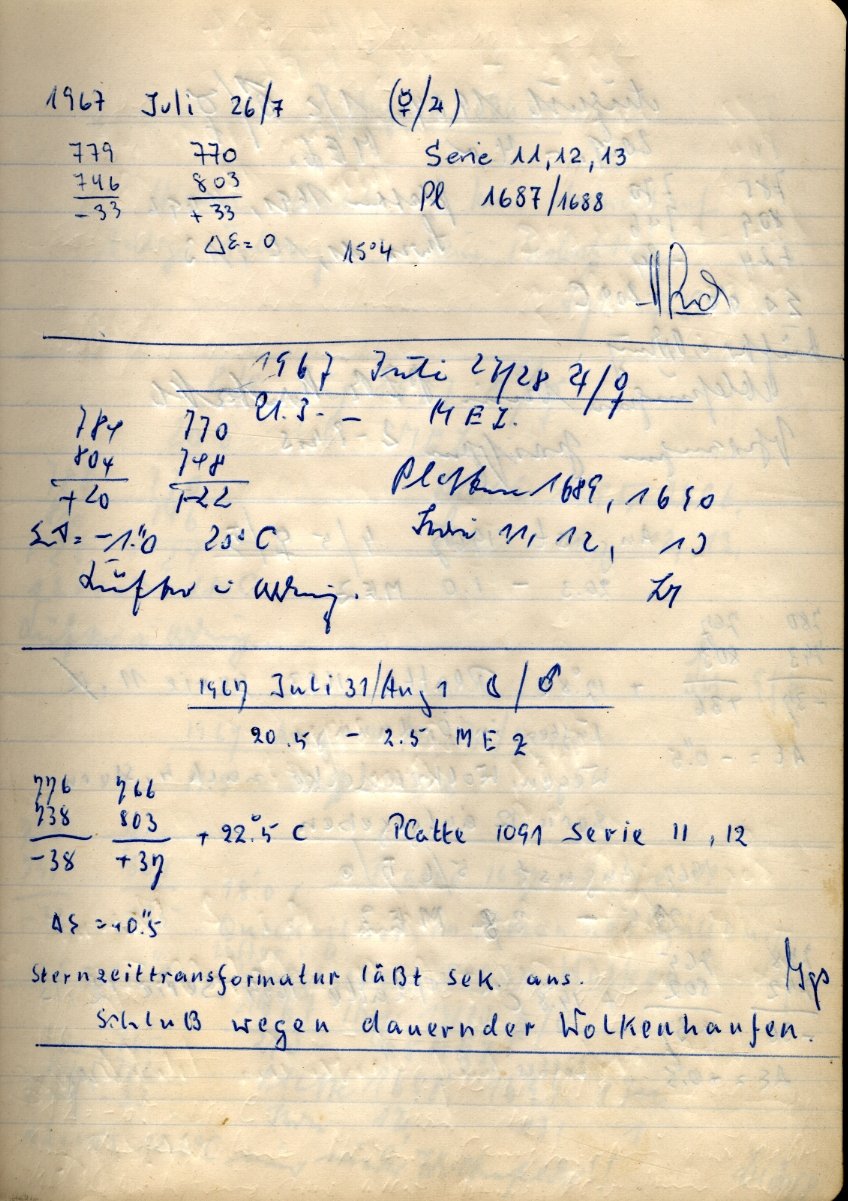 1967 Juli 26/7 (☿/♃)
779 770 Serie 11, 12, 13
746 803 Pl 1687/1688
-33 +33
Δε = 0 15°4
1967 Juli 27/28 ♃/♀
21.3 - MEZ.
784 770
804 748 Platten 1689, 1690
+20 -22
= -1."0 20° C Serie 11, 12, 13
Lüfter
1967 Juli 31/Aug 1 ☾/♂
20.5 - 2.5 MEZ
776 766
738 803 + 22.°5 C Platte 1091 Serie 11, 12
-38 +37
Δε = +0."5
Sternzeittransformatur läßt sek. aus.
Schluß wegen dauernder Wolkenhaufen.